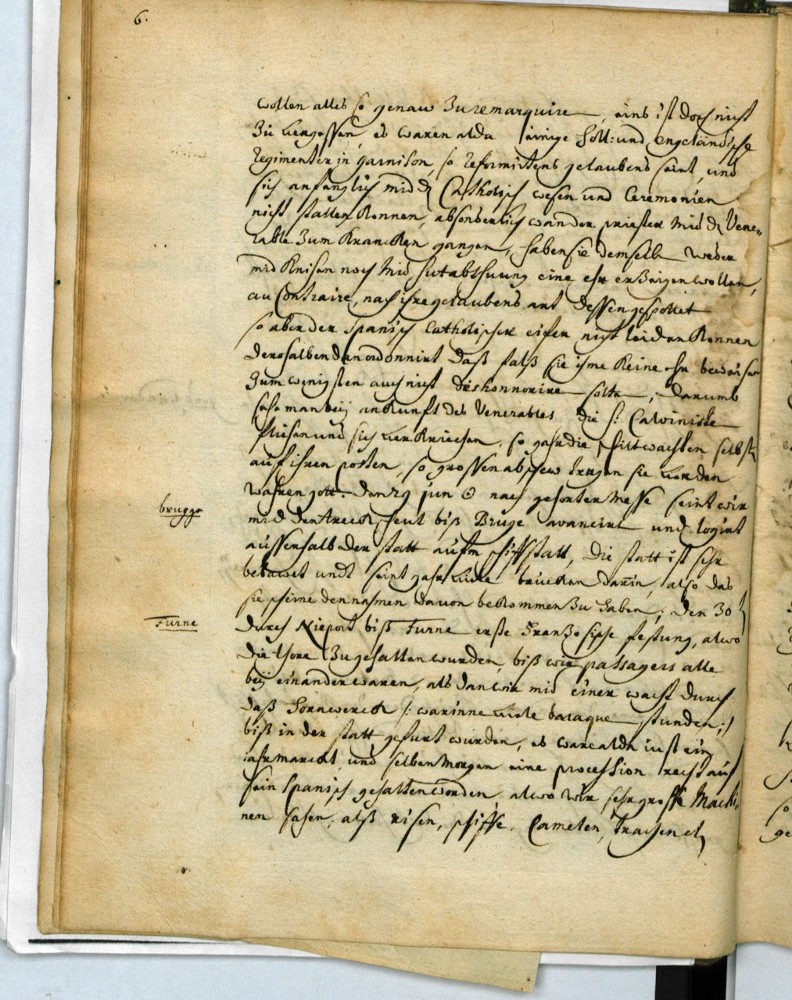 6.
wollen alles so genaw zu remarquiren, eins ist doch nicht
zu vergessen, es waren alda einige Holl: und Engeländische
Regimenter in garnison, so reformirtens gelaubens seint, und
sich anfänglich mid d Catholisch wesen und Ceremonien
nicht stallen konnen, absonderlich wan der priester mid d Vene-
rable zum krancken gangen, haben sie demselb weder
mid knihen noch mid hutabthuung eine ehr erzeigen wollen,
au Contraire, nach ihre gelaubens art dessen gespottet
so aber der Spanisch Catholischer eifer nicht leiden konnen
derohalben dan ordonnirt daß falß sie ihme keine ehr beweisen
zum wenigsten auch nicht dishonnoriren solte, darumb
sahe man beij ankunft des Venerables die H. Calviniste
fliehen und sich verkriechen, so gahr die schiltwachten selbst
auf ihren posten, so grossen abschew trugen sie vor den
wahren gott. den 29 jun ☉ nach gehorter Messe seint wir
brugge
mid den treck schut biß Bruge avancirt und logirt
aussenhalb der statt aufm schiffstatt, die statt ist sehr
bebawet undt seint gahr viele brücken darin, also das
sie scheine den nahmen davon bekommen zu haben; den 30
Furne
durch Nieport biß Furne erste Franzosische festung, alwo
die thore zugehalten wurden, biß wir passagers alle
beij einander waren, alsdan wir mid einer wacht durch
daß Hornwerck /: warinne viele baraque stunden :/
biß in der statt gefurt wurden, es ware alda just ein
jahrmarckt, und selben Morgen eine procession recht auf
sein Spanisch gehalten worden, alwo wir sehr grosse Machi-
nen sahen, alß risen, schiffe, Camelen, trachen etc